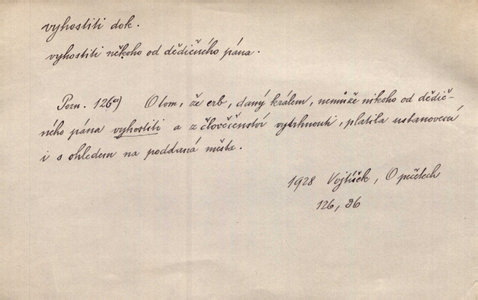 vyhostiti dok.
vyhostiti někoho od dědičného pána.
Pozn. 126a) O tom, že erb, daný králem, nemůže nikoho od dědič-
ného pána vyhostiti a z člověčenství vytrhnouti, platila ustanovení
i s ohledem na poddaná města.
1928 Vojtíšek, O pečetech
126, 36